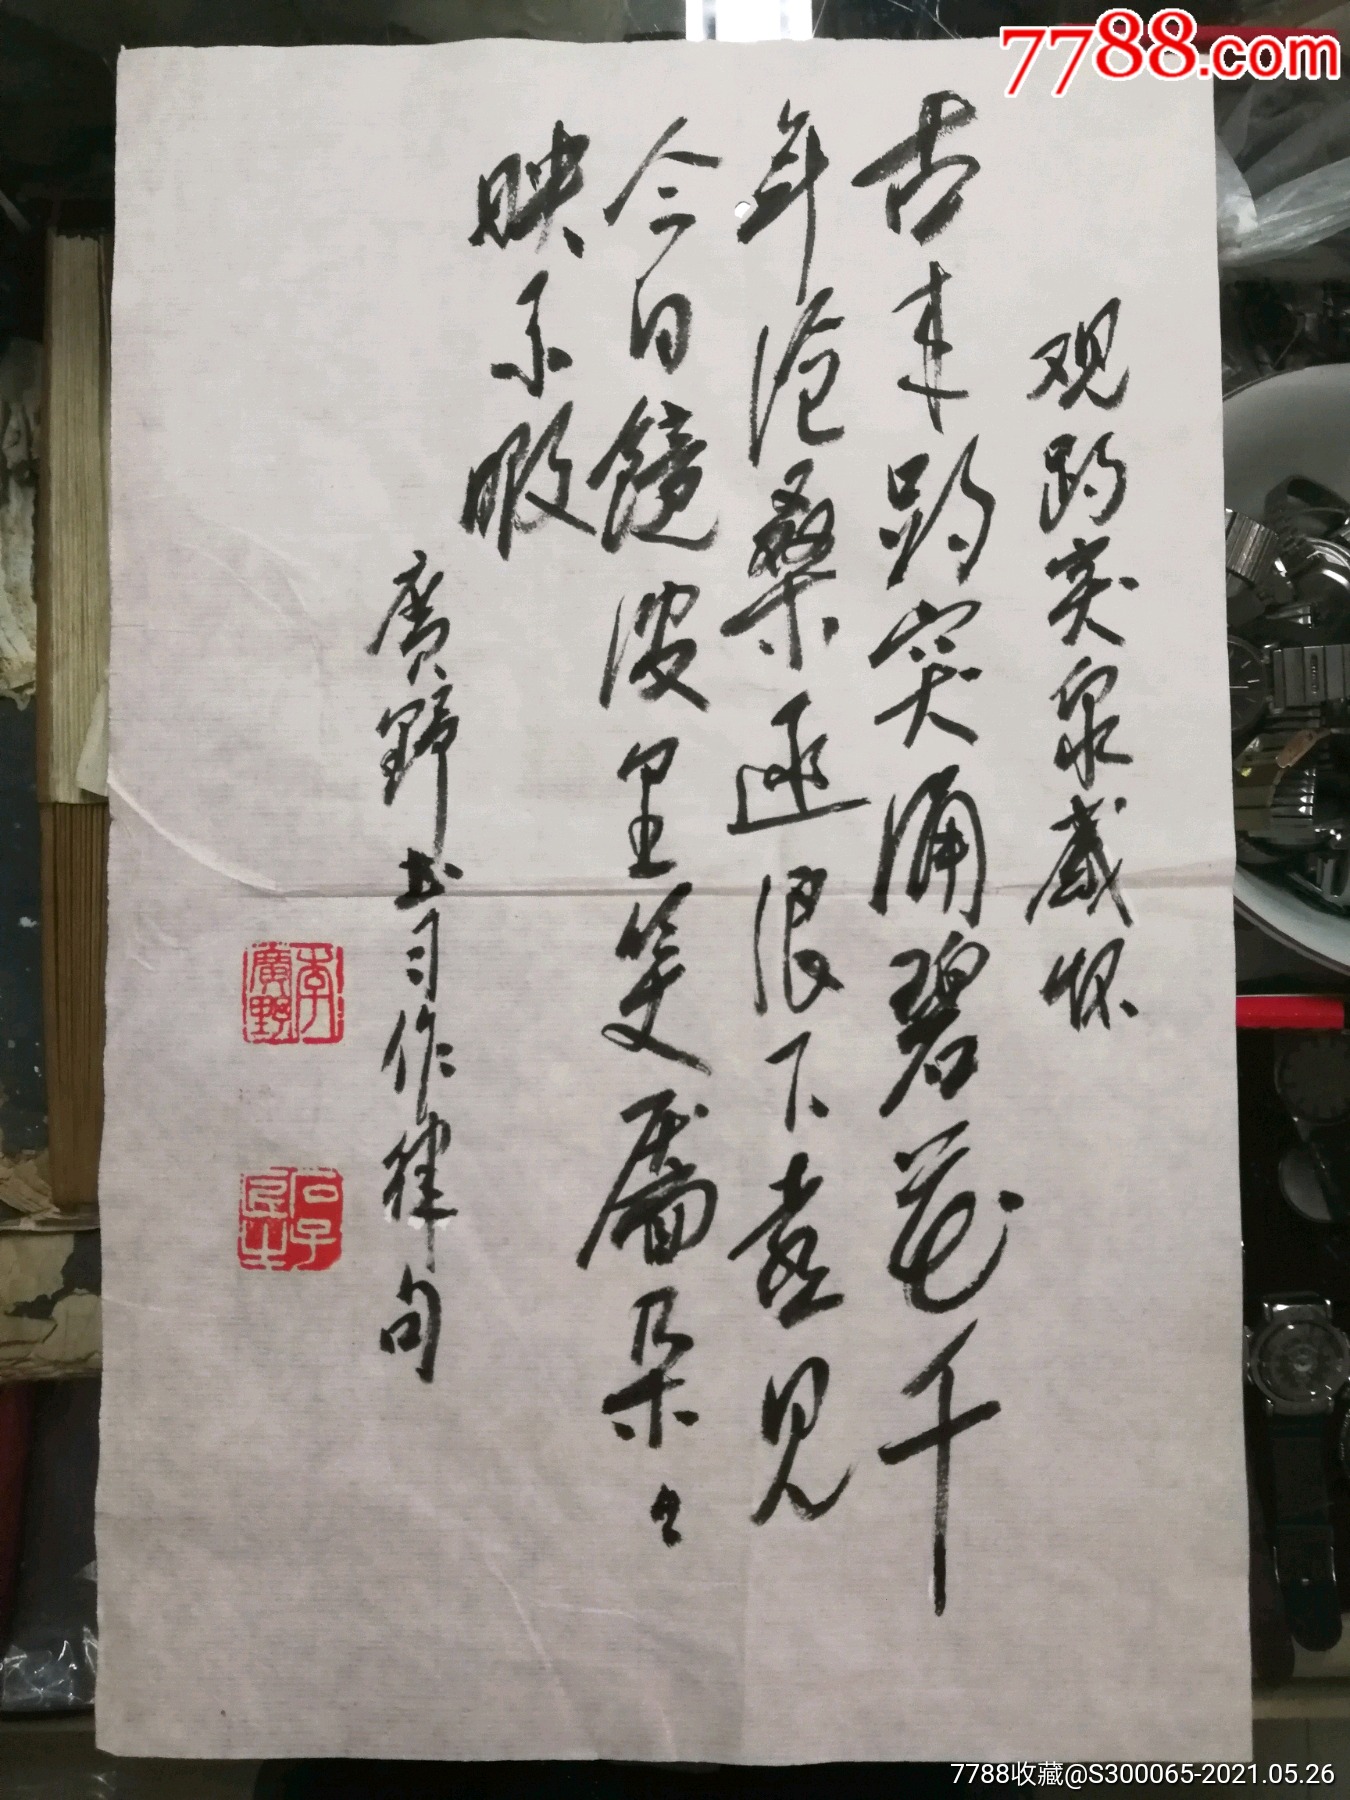 7788.com
观趵突泉感怀
古来趵突涌碧花千
年沧桑逐浪下喜见
今日镜波里笑靥朵々
映系暇
广野书习作律句
李广野
7788收藏@S300065-2021.05.26